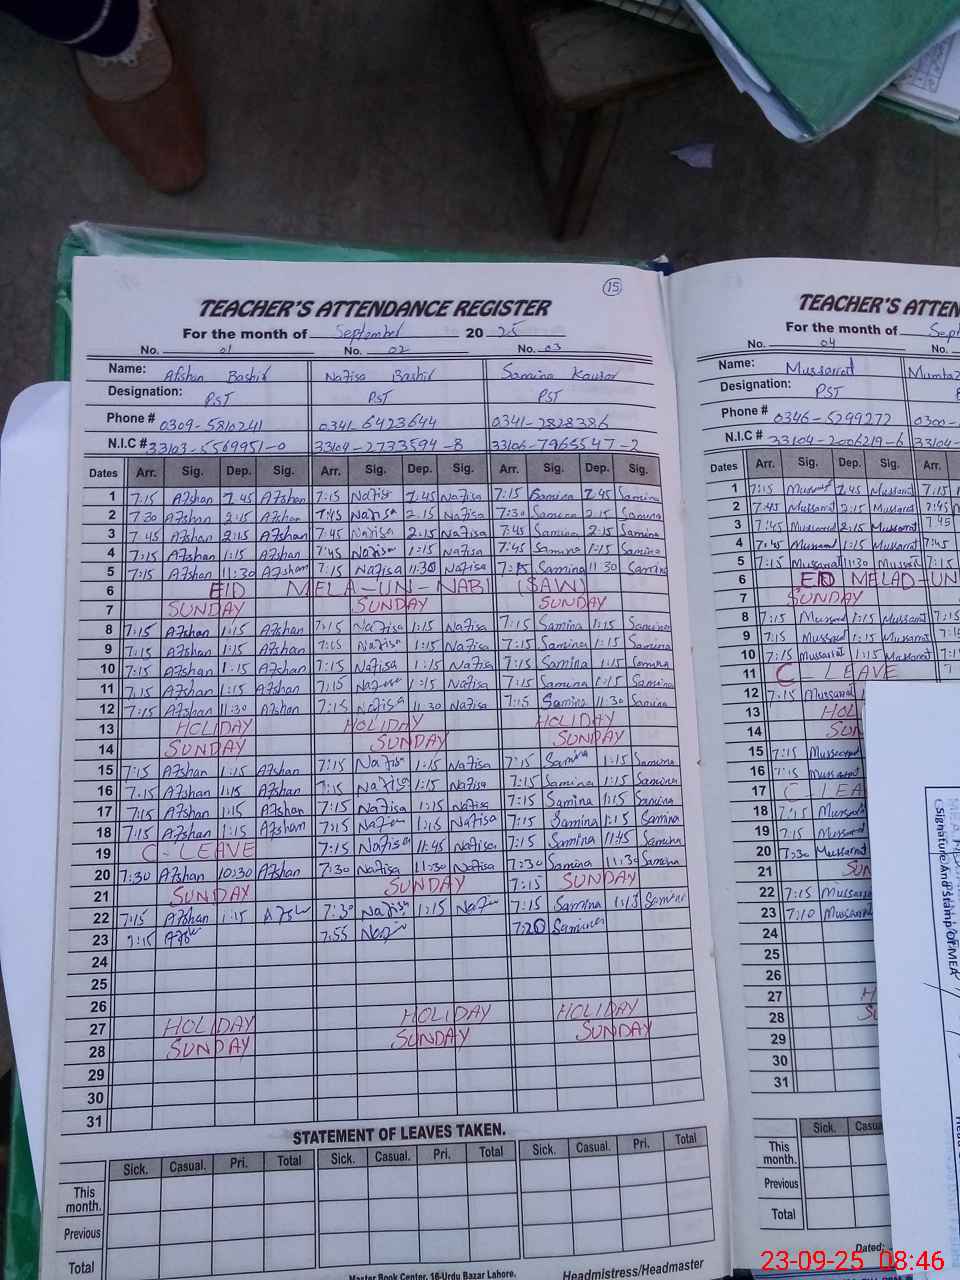 15
TEACHER'S ATTENDANCE REGISTER
For the month of September 20 25
No. 01 No. 02 No. 03
Name: Afshan Bashir Nafisa Bashir Samina Kausar
Designation: PST PST PST
Phone # 0309-5810241 0341-6423644 0341-2828386
N.I.C # 33103-5569951-0 33104-2733594-8 33106-7965547-2
Dates Arr. Sig. Dep. Sig. Arr. Sig. Dep. Sig. Arr. Sig. Dep. Sig.
1 7:15 Afshan 2:45 Afshan 7:15 Nafisa 2:45 Nafisa 7:15 Samina 2:45 Samina
2 7:30 Afshan 2:15 Afshan 7:45 Nafisa 2:15 Nafisa 7:30 Samina 2:15 Samina
3 7:45 Afshan 2:15 Afshan 7:45 Nafisa 2:15 Nafisa 7:45 Samina 2:15 Samina
4 7:15 Afshan 1:15 Afshan 7:45 Nafisa 1:15 Nafisa 7:45 Samina 1:15 Samina
5 7:15 Afshan 11:30 Afshan 7:15 Nafisa 11:30 Nafisa 7:15 Samina 11:30 Samina
6 EID MELA-UN-NABI (SAW)
7 SUNDAY SUNDAY SUNDAY
8 7:15 Afshan 1:15 Afshan 7:15 Nafisa 1:15 Nafisa 7:15 Samina 1:15 Samina
9 7:15 Afshan 1:15 Afshan 7:15 Nafisa 1:15 Nafisa 7:15 Samina 1:15 Samina
10 7:15 Afshan 1:15 Afshan 7:15 Nafisa 1:15 Nafisa 7:15 Samina 1:15 Samina
11 7:15 Afshan 1:15 Afshan 7:15 Nafisa 1:15 Nafisa 7:15 Samina 1:15 Samina
12 7:15 Afshan 11:30 Afshan 7:15 Nafisa 11:30 Nafisa 7:15 Samina 11:30 Samina
13 HOLIDAY HOLIDAY HOLIDAY
14 SUNDAY SUNDAY SUNDAY
15 7:15 Afshan 1:15 Afshan 7:15 Nafisa 1:15 Nafisa 7:15 Samina 1:15 Samina
16 7:15 Afshan 1:15 Afshan 7:15 Nafisa 1:15 Nafisa 7:15 Samina 1:15 Samina
17 7:15 Afshan 1:15 Afshan 7:15 Nafisa 1:15 Nafisa 7:15 Samina 1:15 Samina
18 7:15 Afshan 1:15 Afshan 7:15 Nafisa 1:15 Nafisa 7:15 Samina 1:15 Samina
19 C-LEAVE 7:15 Nafisa 11:45 Nafisa 7:15 Samina 11:45 Samina
20 7:30 Afshan 10:30 Afshan 7:30 Nafisa 11:30 Nafisa 7:30 Samina 11:30 Samina
21 SUNDAY SUNDAY 7:15 SUNDAY
22 7:15 Afshan 1:15 7:30 Nafisa 1:15 7:15 Samina 1:15 Samina
23 7:15 7:55 7:20 Samina
24
25
26
27 HOLIDAY HOLIDAY HOLIDAY
28 SUNDAY SUNDAY SUNDAY
29
30
31
STATEMENT OF LEAVES TAKEN.
Sick. Casual. Pri. Total Sick. Casual. Pri. Total Sick. Casual. Pri. Total
This month.
Previous
Total
Master Book Center, 16-Urdu Bazar Lahore. Headmistress/Headmaster
TEACHER'S ATTEN
For the month of Sept
No. 04 No.
Name: Mussarrat Mumtaz
Designation: PST
Phone # 0346-5299272 0300-
N.I.C # 33104-2006219-6 33104-
Dates Arr. Sig. Dep. Sig. Arr.
1 7:15 Mussarat 2:45 Mussarat 7:15
2 7:45 Mussarat 2:15 Mussarat 7:45
3 7:45 Mussarat 2:15 Mussarat 7:45
4 7:45 Mussarat 1:15 Mussarat 7:45
5 7:15 Mussarat 11:30 Mussarat 7:15
6 EID MELAD-UN
7 SUNDAY
8 7:15 Mussarat 1:15 Mussarat 7:15
9 7:15 Mussarat 1:15 Mussarat 7:15
10 7:15 Mussarat 1:15 Mussarat 7:1
11 C-LEAVE 7
12 7:15 Mussarat
13 HOL
14 SUN
15 7:15 Mussarat
16 7:15 Mussarat
17 C-LEA
18 7:15 Mussarat
19 7:15 Mussarat
20 7:30 Mussarat
21 SUN
22 7:15 Mussarat
23 7:10 Mussarat
24
25
26
27 H
28 SU
29
30
31
Sick. Casua
This month.
Previous
Total
Dated:
Signature And Stamp of MEA
23-09-25 08:46